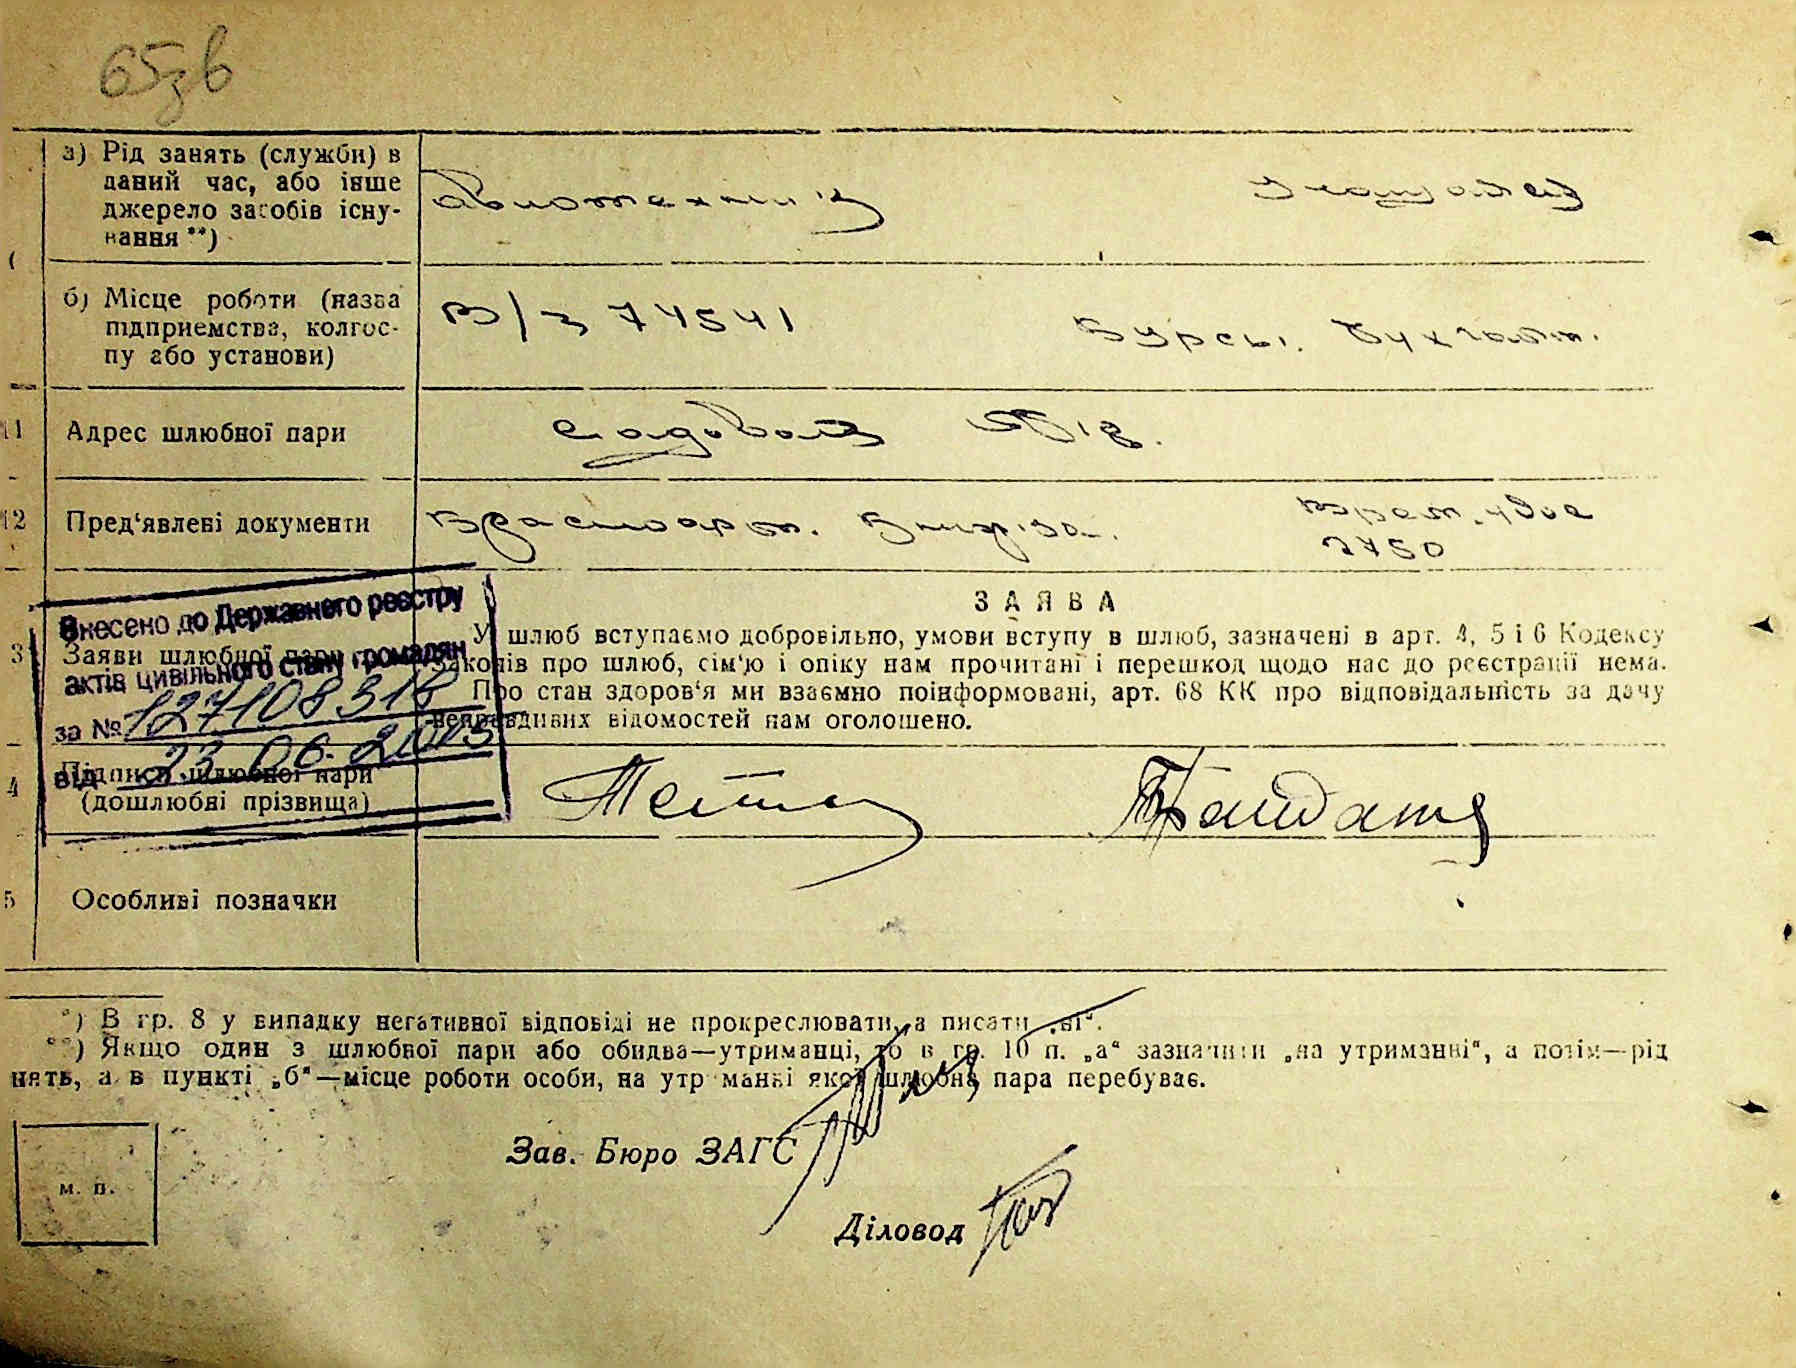 65зв
а) Рід занять (служби) в
даний час, або інше
джерело засобів існу-
вання **)
авиотехник
учащаяся
б) Місце роботи (назва
підприємства, колгос-
пу або установи)
В/з 74541
Курсы. Бухгалт.
11 Адрес шлюбної пари
Садовая
12 Пред'явлені документи
Красноарм. Книжка.
Врем. удос
2750
Внесено до Державнего реєстру
актів цивільного стану громадян
за №
від 23.06.2015
ЗАЯВА
3 Заяви шлюбної пари
У шлюб вступаємо добровільно, умови вступу в шлюб, зазначені в арт. 4, 5 і 6 Кодексу
законів про шлюб, сім'ю і опіку нам прочитані і перешкод щодо нас до реєстрації нема.
Про стан здоров'я ми взаємно поінформовані, арт. 68 КК про відповідальність за дачу
неправдивих відомостей нам оголошено.
4 Підписи шлюбної пари
(дошлюбні прізвища)
5 Особливі позначки
*) В гр. 8 у випадку негативної відповіді не прокреслювати, а писати „ні“.
**) Якщо один з шлюбної пари або обидва—утриманці, то в гр. 10 п. „а“ зазначити „на утриманні“, а потім—рід
нять, а в пункті „б“—місце роботи особи, на утр манні якої шлюбна пара перебуває.
Зав. Бюро ЗАГС
м. п.
Діловод